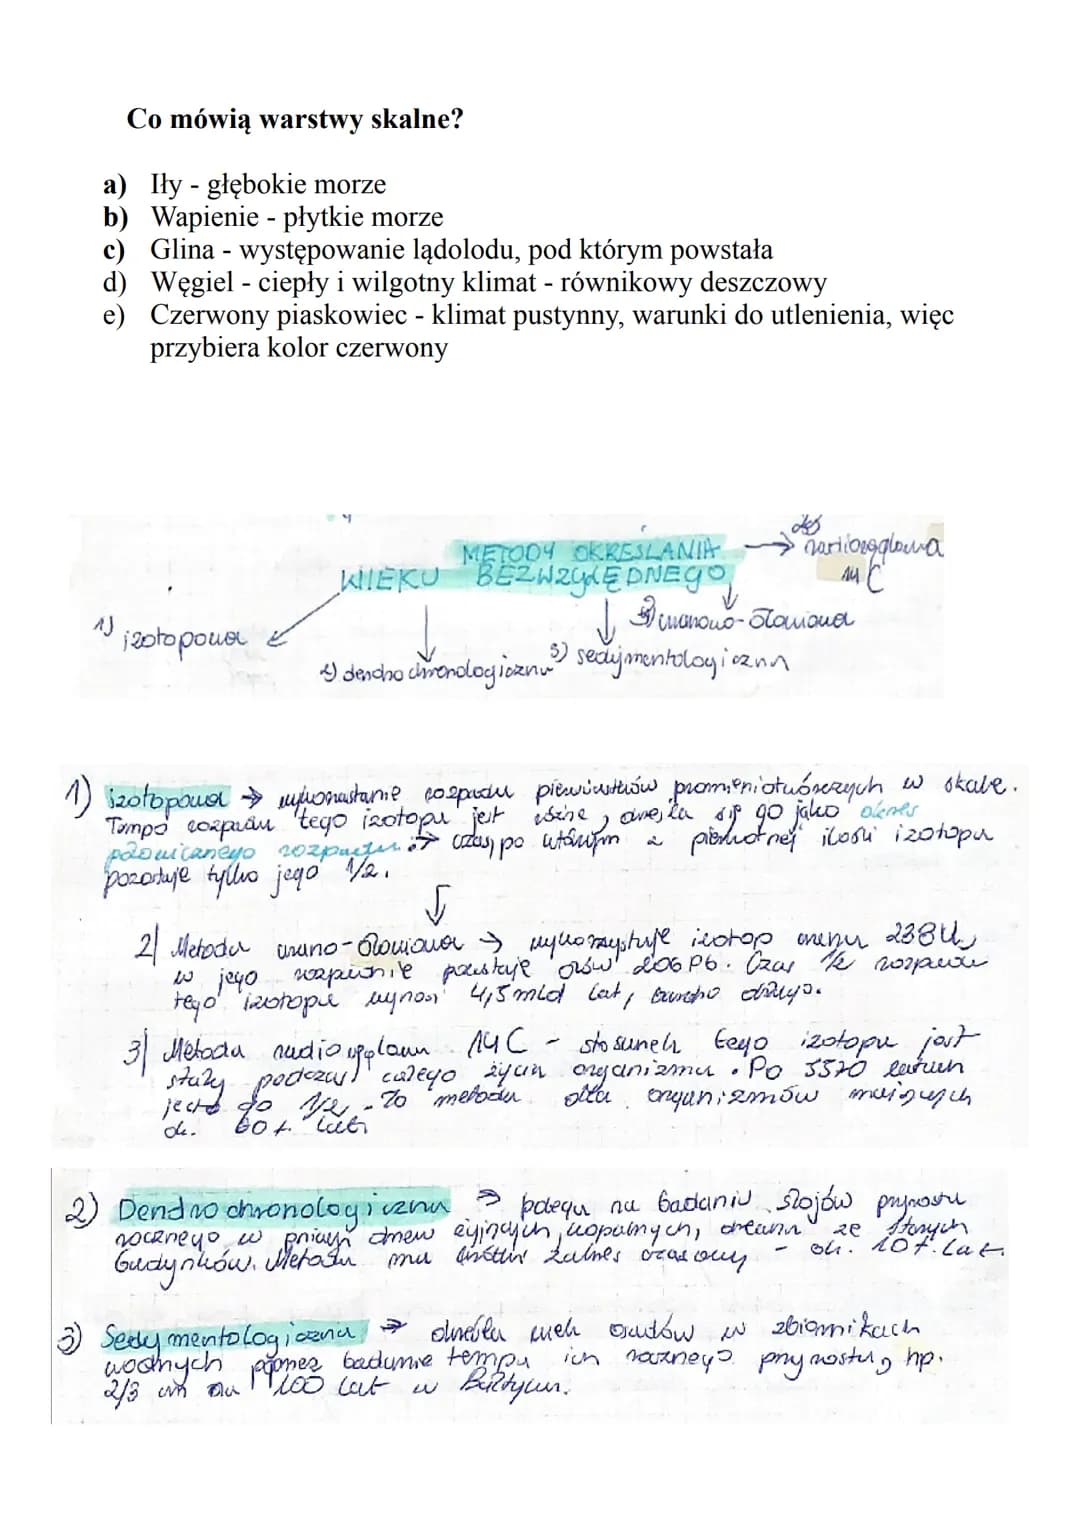 Co mówią warstwy skalne?
a) Iły - głębokie morze
b) Wapienie - płytkie morze
c) Glina - występowanie lądolodu, pod którym powstała
d) Węgiel - ciepły i wilgotny klimat - równikowy deszczowy
e) Czerwony piaskowiec - klimat pustynny, warunki do utlenienia, więc
przybiera kolor czerwony
METODY OKREŚLANIA →
WIEKU BEZWZGLĘDNEGO 14C
1) izotopowa uranowo-ołowiowa
dendrochronologiczna sedymentologiczna
1) izotopowa → wykorzystanie rozpadu pierwiastków promieniotwórczych w skale.
Tempo rozpadu tego izotopu jest różne, określa się go jako okres
połowicznego rozpadu → czas, po którym z pierwotnej ilości izotopu
pozostaje tylko jego 1/2.
2) Metoda urano-ołowiowa → wykorzystuje izotop uranu 238U,
w jego rozpadnie powstaje ołów 206Pb. Czas 1/2 rozpadu
tego izotopu wynosi 4,5 mld lat, bardzo długo.
3) Metoda radiowęglowa 14C - stosunek tego izotopu jest
stały podczas całego życia organizmu. Po 5570 latach
jest go 1/2. To metoda dla organizmów mających
ok. 60 t. lat
2) Dendrochronologiczna → polega na badaniu słojów przyrostu
rocznego w pniach drzew żyjących, kopalnych, drewna ze starych
budynków. Metoda ma krótki zakres czasowy - ok. 10 t. lat.
3) Sedymentologiczna → określa wiek osadów w zbiornikach
wodnych poprzez badanie tempa ich rocznego przyrostu, np.
2/3 cm na 100 lat w Bałtyku.